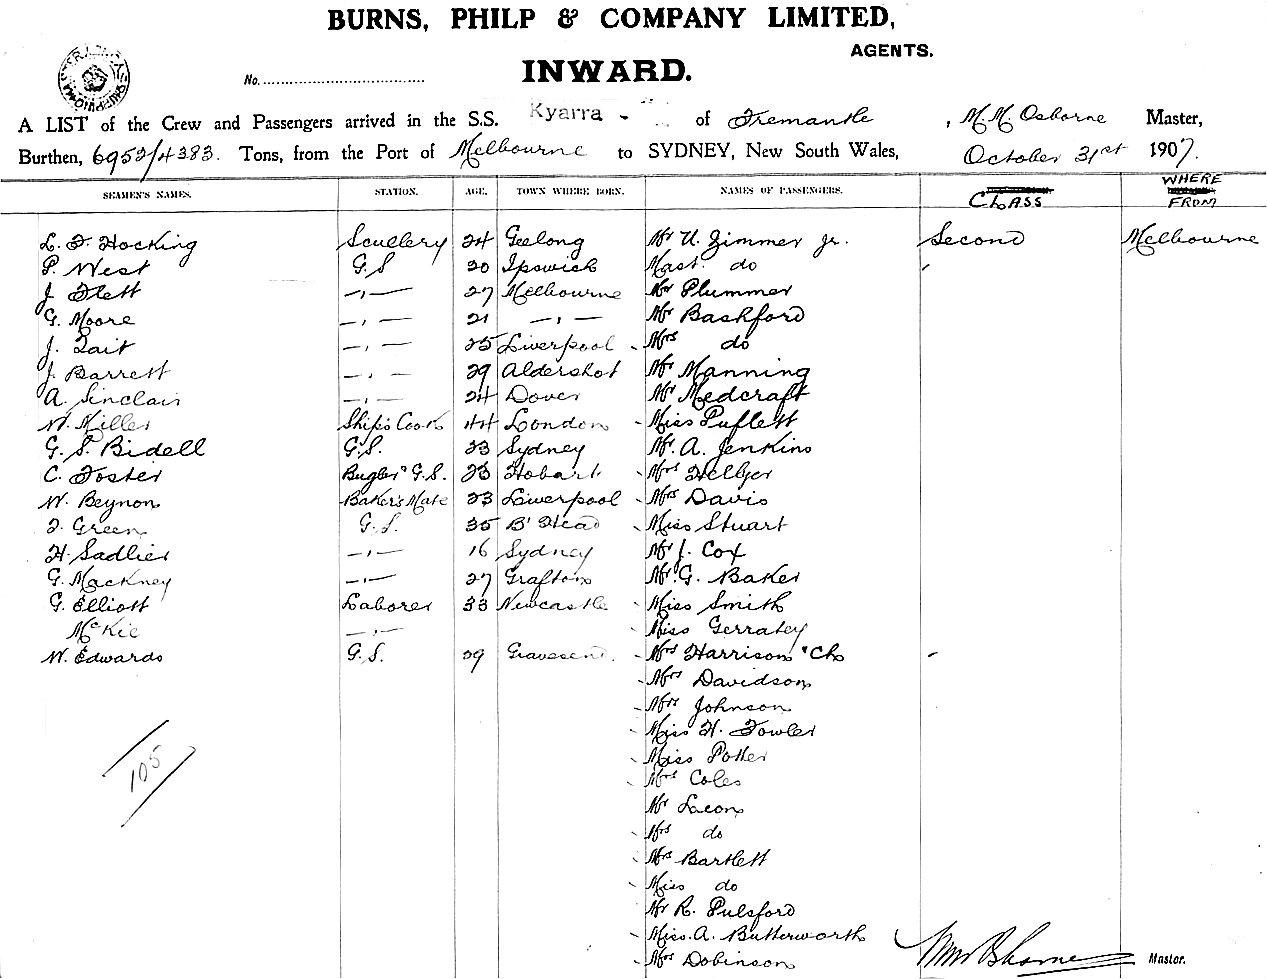 BURNS, PHILP & COMPANY LIMITED,
AGENTS.
No.
INWARD.
A LIST of the Crew and Passengers arrived in the S.S. Kyarra - of Fremantle , M.M. Osborne Master,
Burthen, 6953/4383. Tons, from the Port of Melbourne to SYDNEY, New South Wales, October 31st 1907.
SEAMEN'S NAMES. STATION. AGE. TOWN WHERE BORN. NAMES OF PASSENGERS. CLASS WHERE FROM
L. F. Hocking Scullery 24 Geelong Mr U. Zimmer Jr. Second Melbourne
P. West G.S 20 Ipswich Mast. do
J. Flett -,- 27 Melbourne Mr Plummer
G. Moore -,- 21 -,- Mr Bashford
J. Tait -,- 25 Liverpool Mrs do
J. Barrett -,- 29 Aldershot Mr Manning
A. Sinclair -,- 24 Dover Mr Medcraft
W. Miller Ship's Cook 44 London Miss Puflett
G. S. Bidell G.S. 33 Sydney Mr. A. Jenkins
C. Foster Bugler & G.S. Hobart Mrs Hellyer
W. Beynon Baker's Mate 23 Liverpool Mrs Davis
F. Green G.S. 35 B'Head Miss Stuart
H. Sadlier -,- 16 Sydney Mr J. Cox
G. Mackney -,- 27 Grafton Mr. G. Baker
G. Elliott Laborer 33 Newcastle Miss Smith
McKie -,- Miss Gerratey
W. Edwards G.S. 29 Gravesend. Mrs Harrison & Ch
Mrs Davidson
Mrs Johnson
Miss H. Fowler
Miss Potter
Mrs Coles
Mr Lacon
Mrs do
Mrs Bartlett
Miss do
Mr R. Pulsford
Miss. A. Butterworth
Mrs Dobinson Master.
105